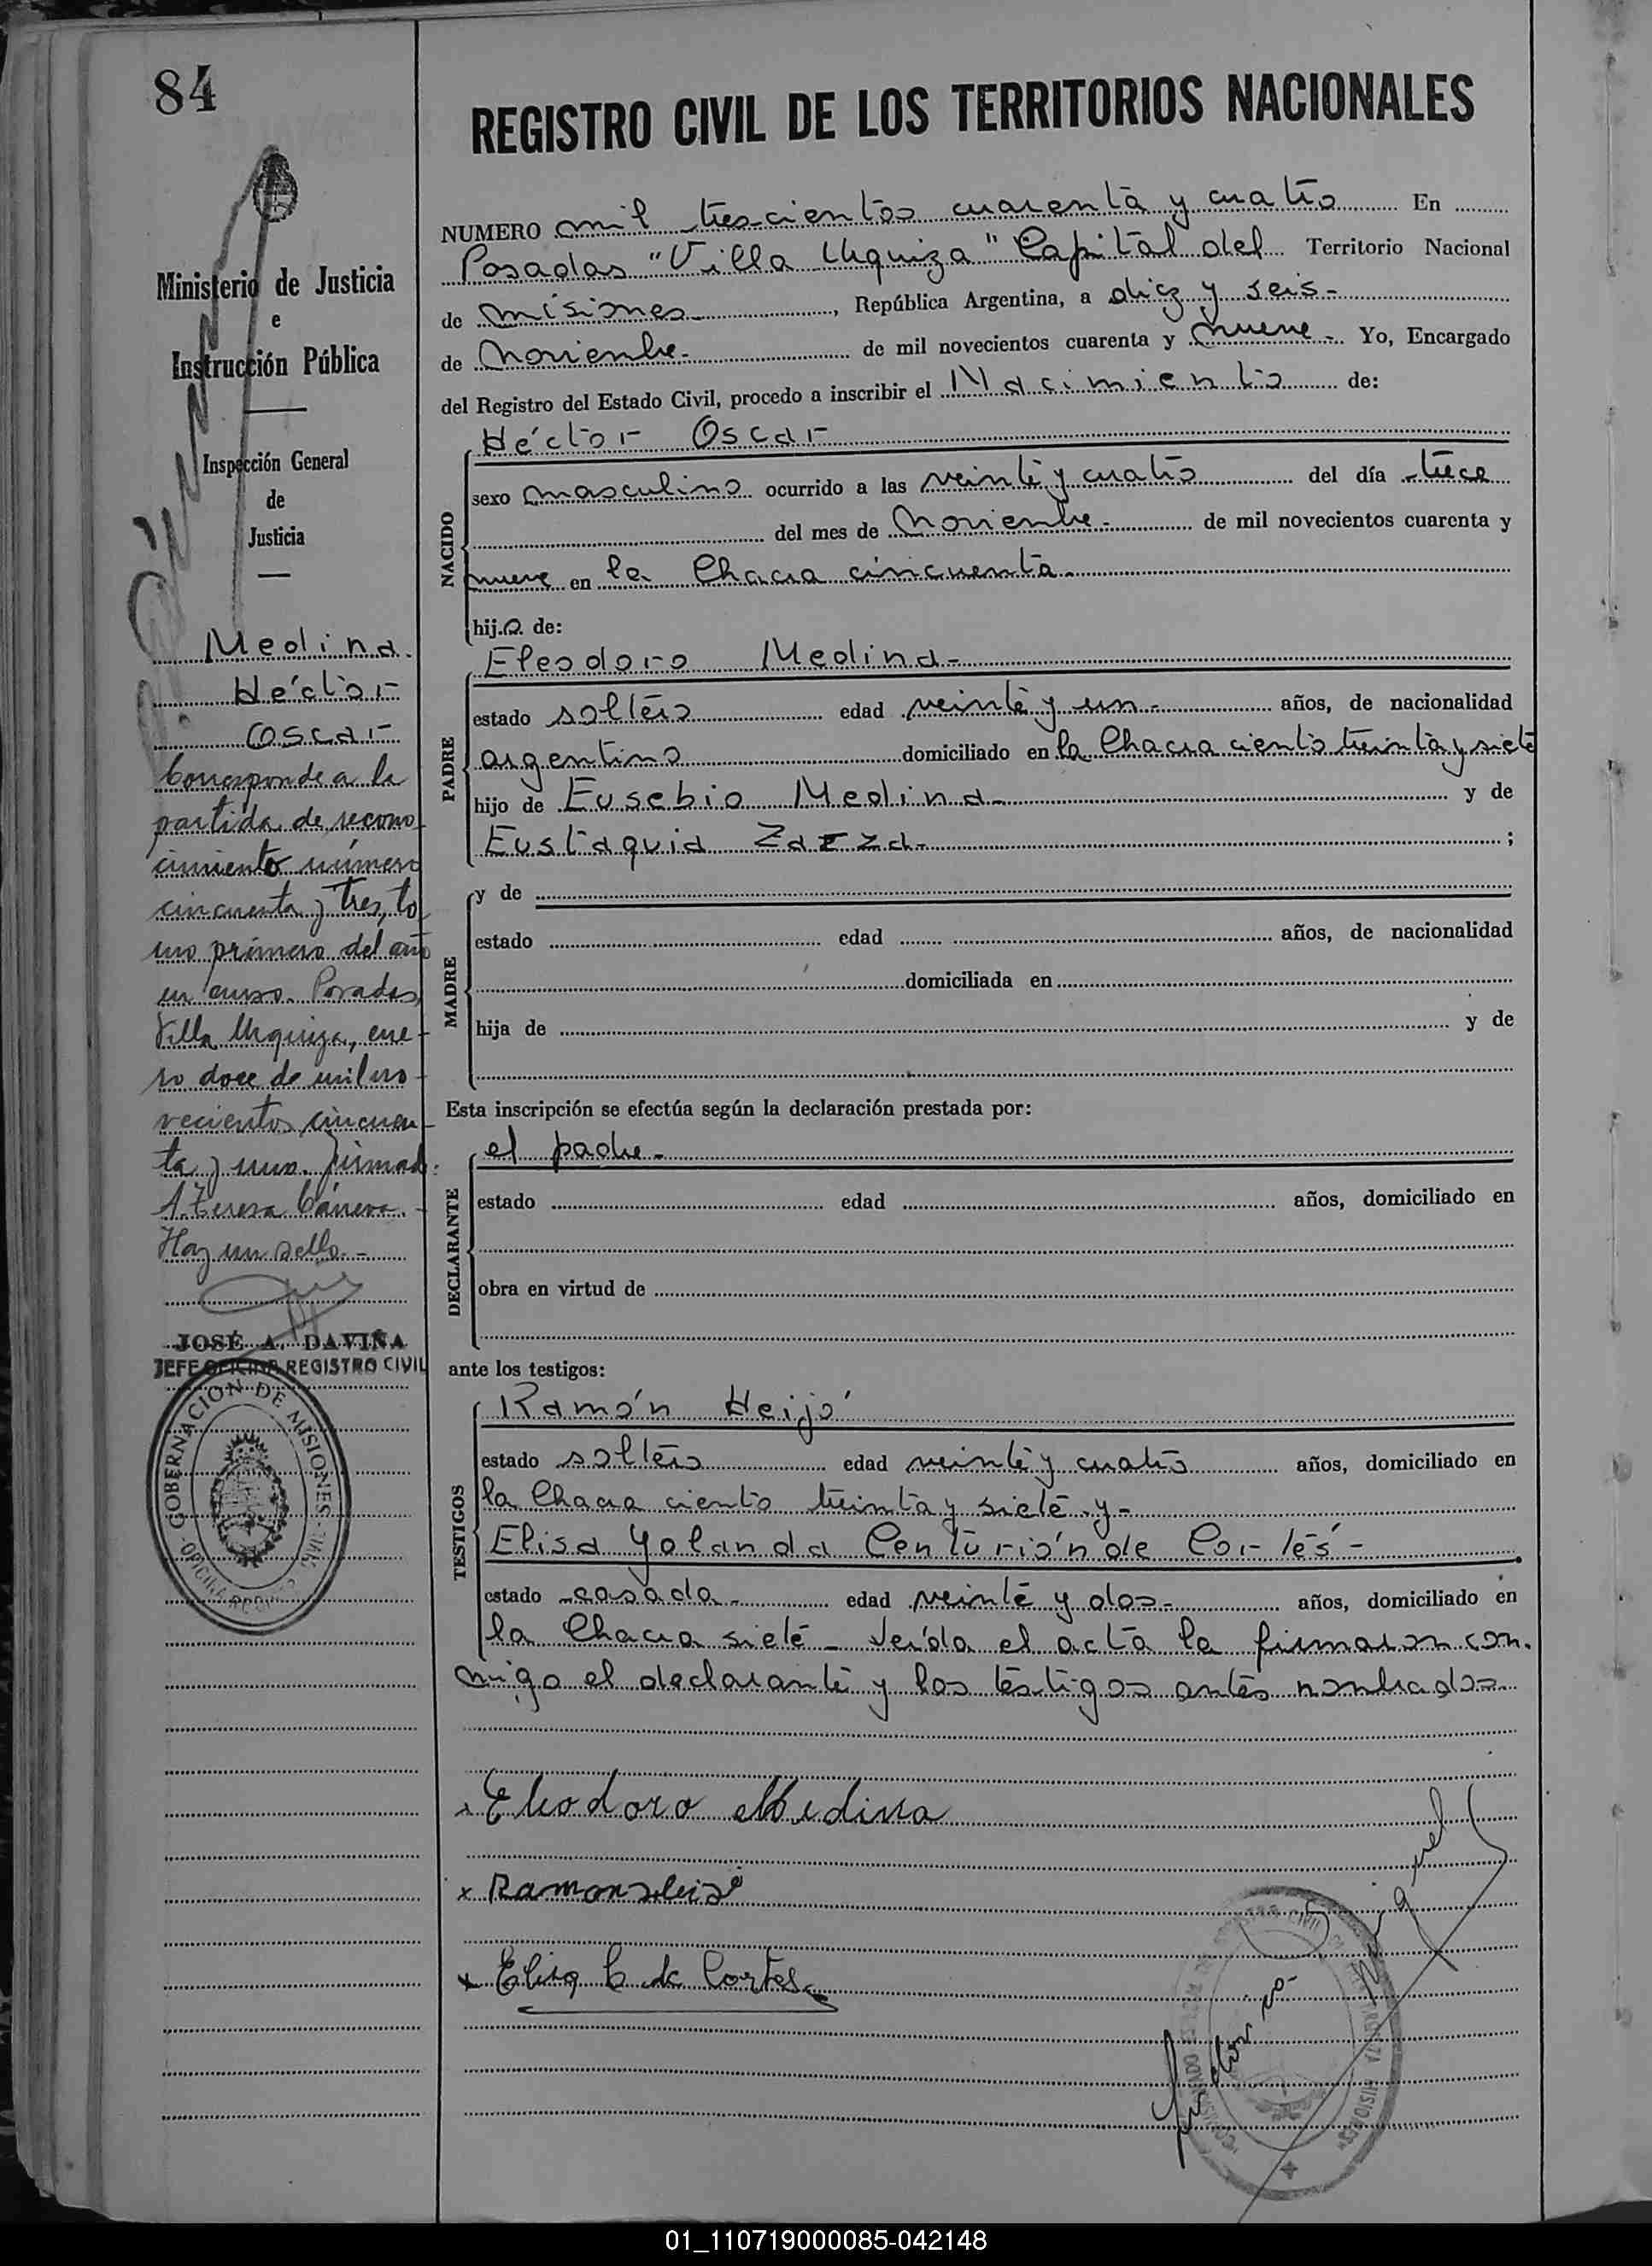 84
REGISTRO CIVIL DE LOS TERRITORIOS NACIONALES
Ministerio de Justicia
e
Instrucción Pública
Inspección General
de
Justicia
Medina
Héctor
Oscar
Corresponde a la
partida de recono-
cimiento número
cincuenta y tres, to-
mo primero del año
en curso. Posadas,
Villa Urquiza, ene-
ro doce de mil no-
vecientos cincuen-
ta y uno. firmad:
A. Teresa
Hay un sello.-
JOSÉ A. DAVIÑA
JEFE OFICINA REGISTRO CIVIL
GOBERNACION DE MISIONES
NUMERO mil trescientos cuarenta y cuatro En
Posadas "Villa Urquiza" Capital del Territorio Nacional
de Misiones, República Argentina, a diez y seis-
de Noviembre- de mil novecientos cuarenta y nueve- Yo, Encargado
del Registro del Estado Civil, procedo a inscribir el Nacimiento de:
Héctor Oscar
NACIDO
sexo masculino ocurrido a las veinte y cuatro del día trece
del mes de Noviembre- de mil novecientos cuarenta y
nueve en la Chacra cincuenta-
hijo de:
PADRE
Eleodoro Medina-
estado soltero edad veinte y un- años, de nacionalidad
argentino domiciliado en la Chacra ciento treinta y siete
hijo de Eusebio Medina- y de
Eustaquia Zarza- ;
MADRE
y de
estado edad años, de nacionalidad
domiciliada en
hija de y de
Esta inscripción se efectúa según la declaración prestada por:
DECLARANTE
el padre-
estado edad años, domiciliado en
obra en virtud de
ante los testigos:
TESTIGOS
Ramón Heijó
estado soltero edad veinte y cuatro años, domiciliado en
la Chacra ciento treinta y siete y-
Elisa Yolanda Centurión de Cortés-
estado casada- edad veinte y dos- años, domiciliado en
la Chacra siete- Leída el acta la firmaron con-
migo el declarante y los testigos antes nombrados
x Eleodoro Medina
x Ramon Heijó
x Elisa C de Cortes
01_110719000085-042148